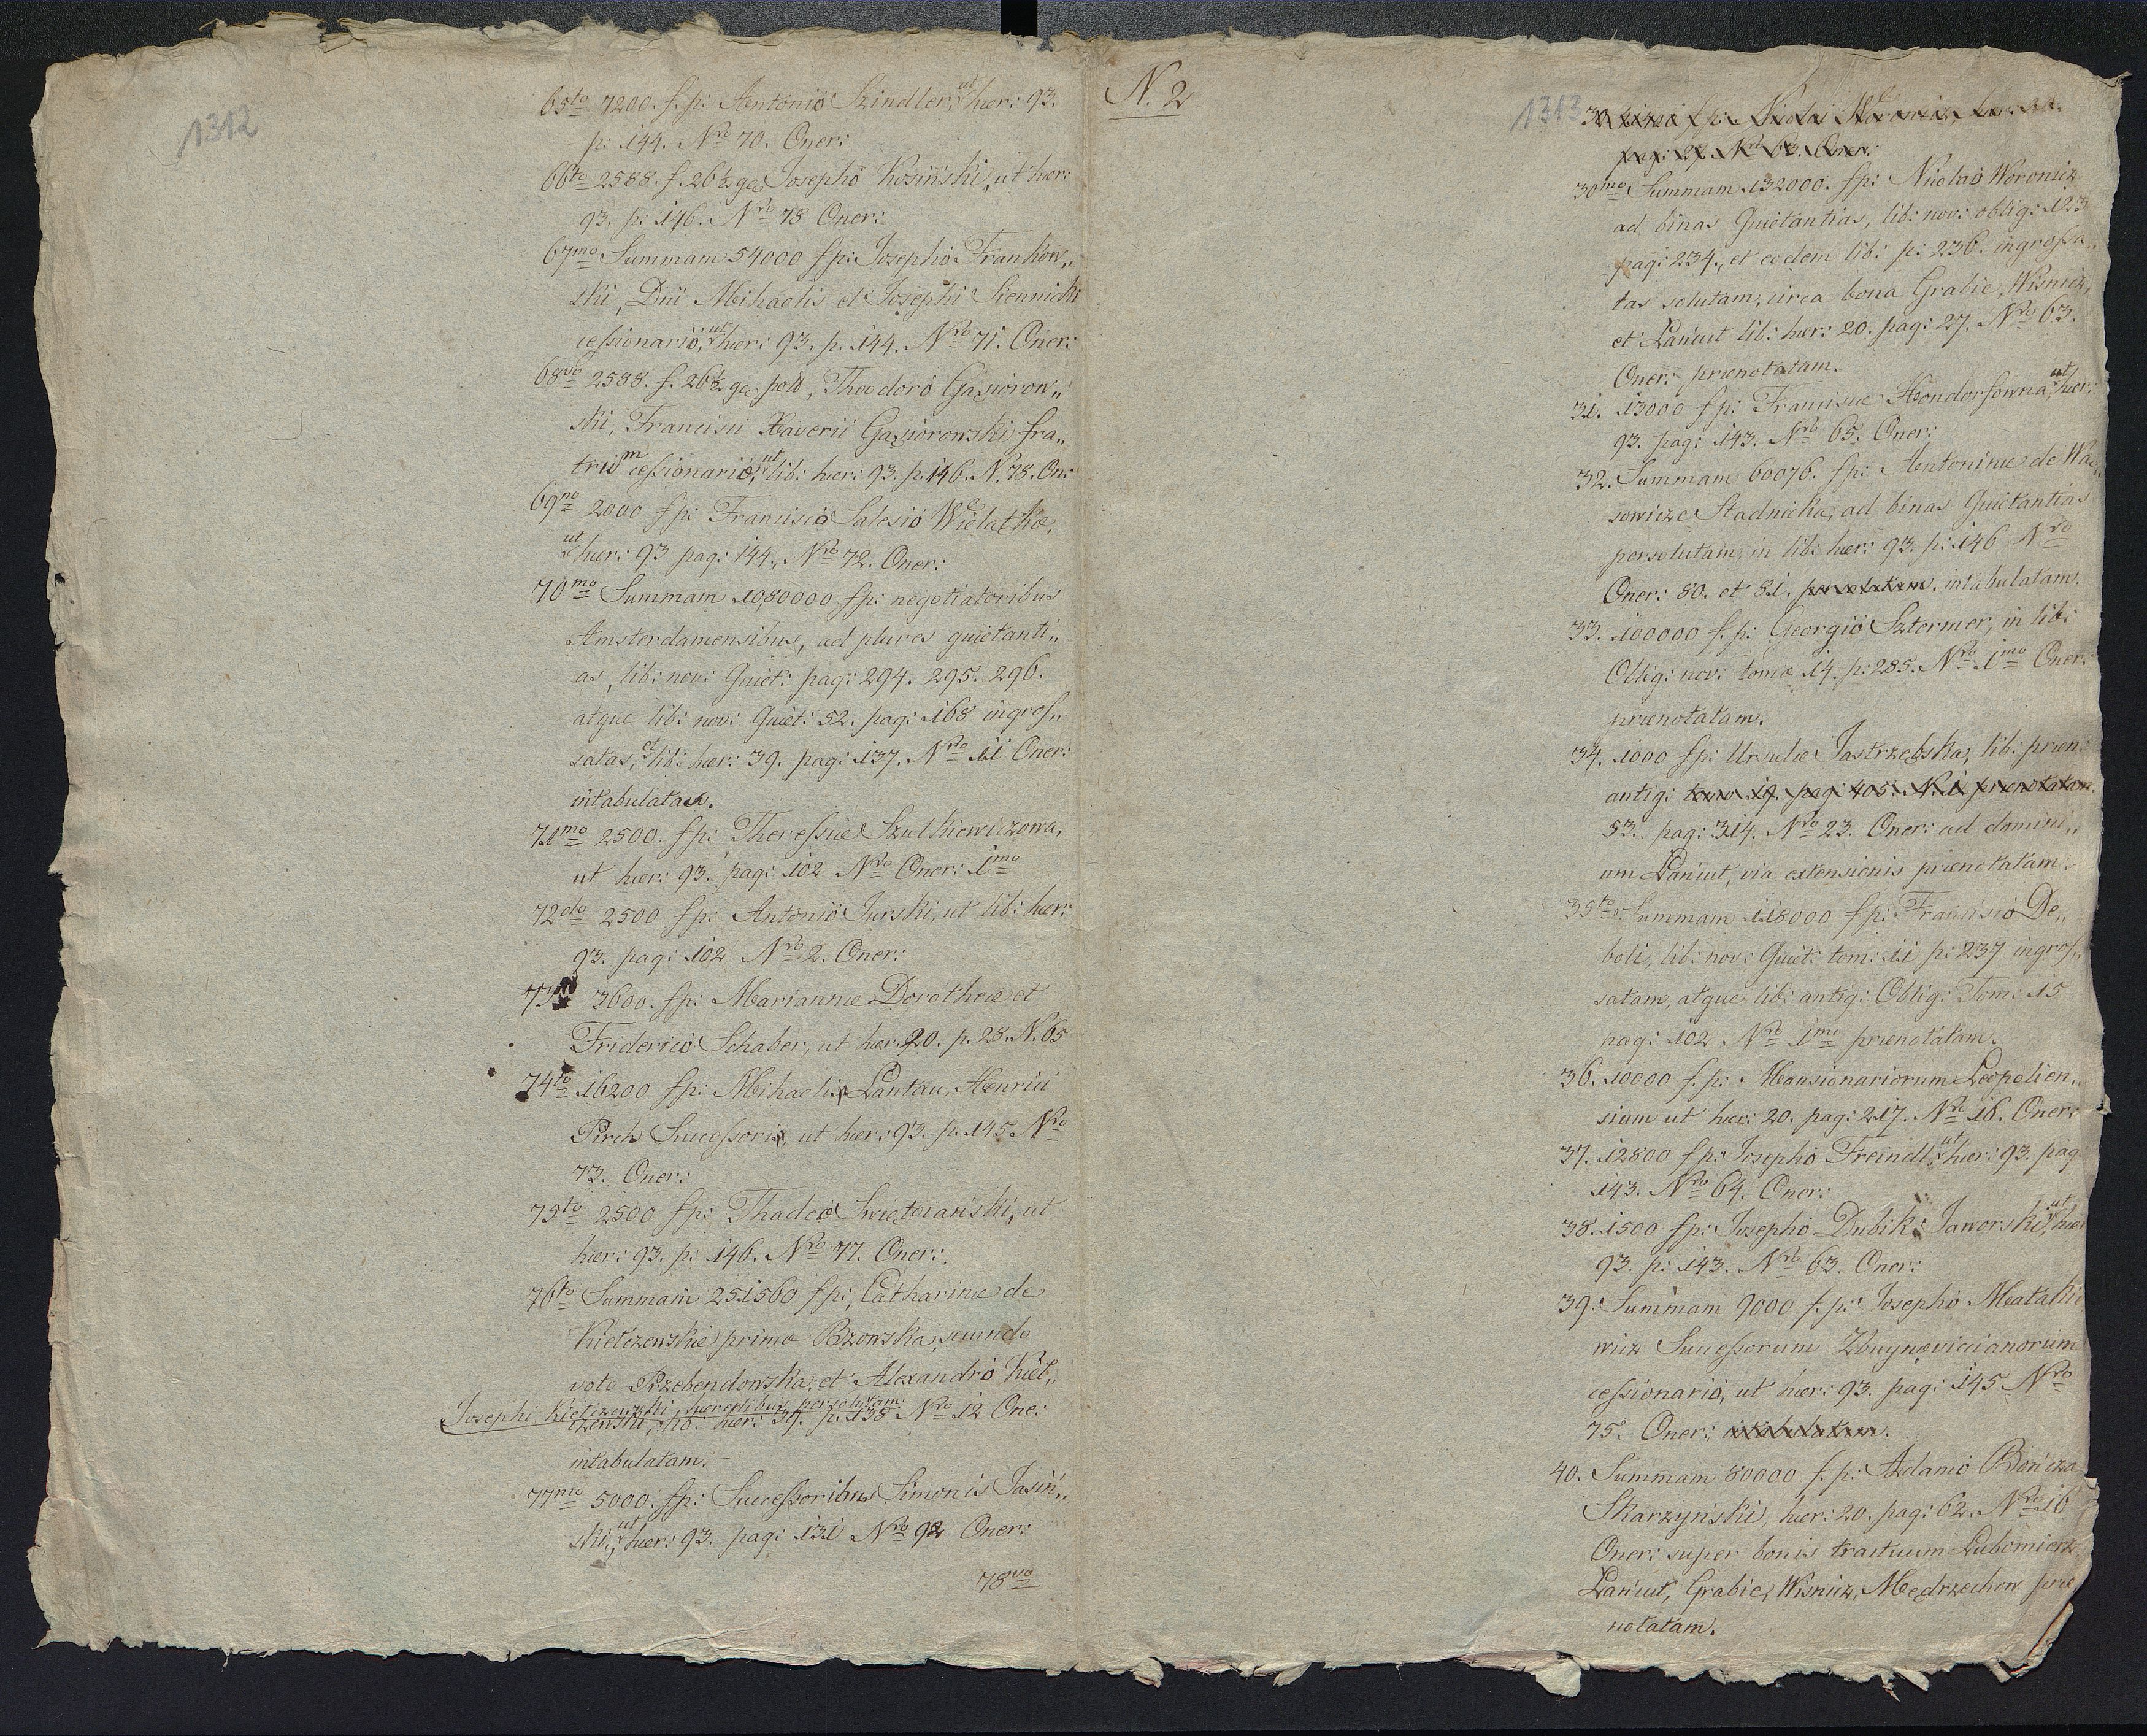 1312
65to 7200. f. p: Antonio Szindler, ut hær: 93.
p: 144. Nro 70. Oner:
66to 2588. f. 26½ ga Josepho Kosiński, ut hær:
93. p: 146. Nro 78 Oner:
67mo Summam 54000 fp: Josepho Frankow„
ski, Dni Mihaelis et Josephi Siennicki
cessionario, ut hær: 93. p. 144. Nro 71. Oner:
68vo 2588. f. 26½ ga: poll, Theodoro Gąsiorow„
ski, Francisci Xaverii Gąsiorowski fra„
tris cessionario, ut lib: hær: 93. p. 146. N. 78. On:
69no 2000 fp: Francisco Salesio Wielątko,
ut hær: 93 pag: 144., Nro 72. Oner:
70mo Summam 1080000 fp: negotiatoribus
Amsterdamensibus, ad plures quietanti„
as, lib: nov: Quiet: pag: 294. 295. 296.
atque lib: nov: Quiet: 52. pag: 168 ingros„
satas, et lib: hær: 39. pag: 137. Nro 11 Oner:
intabulatam.
71mo 2500. fp: Theressiæ Szulkiewiczowa,
ut hær: 93. pag: 102 Nro Oner: 1mo
72do 2500 fp: Antonio Jurski, ut lib: hær:
93. pag: 102 Nro 2. Oner:
73 3600. fp: Mariannæ Dorotheæ et
Friderico Schaber, ut hær: 20. p. 28. N. 65
74to 16200 fp: Mihaelis Lantau, Henrici
Pirch Successoris, ut hær: 93. p. 145 Nro
73. Oner:
75to 2500 fp: Thadeo Swiętorański, ut
hær: 93. p: 146. Nro 77. Oner:
76to Summam 251560 fp:, Catharinæ de
Kiełczewskie primo Bzowska, secundo
voto Przebendowska, et Alexandro Kieł„
Josephi Kiełczewski hæredibus persolutam
czewski, lib: hær: 39. p. 138 Nro 12 One:
intabulatam. –
77mo 5000. fp: Successoribus Simonis Jasiń„
ski, ut hær: 93. pag: 131 Nro 92 Oner:
78vo
N. 2
1313
pag: 27. Nro 63. Oner:
30mo Summam 132000. fp: Nicolao Woronicz
ad binas Quietantias, lib: nov: oblig: 123
pag: 234., et eodem lib: p: 236. ingrossa„
tas solutam, circa bona Grabie, Wisnicz,
et Łańcut lib: hær: 20. pag: 27. Nro 63.
Oner: prænotatam.
31. 13000 fp: Franciscæ Hendorfowna, ut hær:
93. pag: 143. Nro 65. Oner:
32. Summam 60076. fp: Antoninæ de Wą„
sowicze Stadnicka, ad binas Quietantias
persolutam, in lib: hær: 93. p: 146 Nro
Oner: 80. et 81. prænotatam. intabulatam.
33. 100000 f. p: Georgio Sztermer, in lib:
Oblig: nov: tomo 14. p: 285. Nro 1mo Oner:
prænotatam.
34. 1000 fp: Ursulæ Jastrzębska, lib: præn:
antiq: tomo 19. pag: 405. N. 1 prænotatam.
53. pag: 314. Nro 23. Oner: ad domini„
um Łańcut, via extensionis prænotatam.
35to Summam 118000 fp: Francisco De„
boli, lib: nov: Quiet: tom: 11 p: 237 ingros„
satam, atque lib: antiq: Oblig: Tom: 15
pag: 102 Nro 1mo prænotatam.
36. 10000 f. p: Mansionariorum Leopolien„
sium ut hær: 20. pag: 217. Nro 16. Oner:
37. 12800 fp: Josepho Freindl, ut hær: 93. pag
143. Nro 64. Oner:
38. 1500 fp: Josepho Dubik: Jaworski, ut hær
93. p: 143. Nro 63. Oner:
39. Summam 9000 f. p: Josepho Matakie
wicz Successorum Zbuynovicianorum
cessionario, ut hær: 93. pag: 145 Nro
75. Oner: intabulatam.
40. Summam 80000 f. p: Adamo Bończa
Skarzyński, hær: 20. pag: 62. Nro 16
Oner: super bonis tractuum Lubomierz
Łańcut, Grabie, Wisnicz, Mędrzechow præ
notatam.